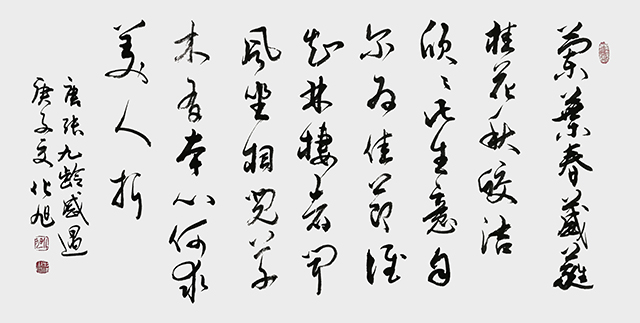 蘭葉春葳蕤
桂花秋皎洁
欣々此生意自
尔為佳節誰
知林棲者聞
風坐相悦草
木有本心何求
美人折
唐張九齡感遇
庚子 化旭